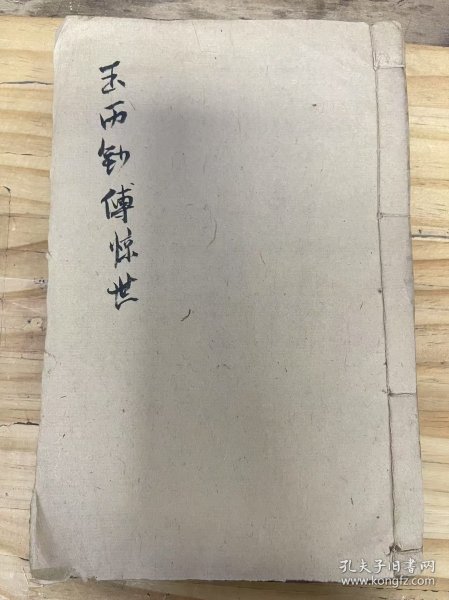 玉而钞傅惊世
孔夫子旧书网
www.kongfz.com